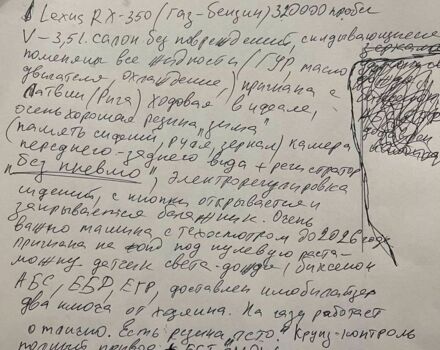 Lexus RX-350 (Газ-бензин) 320000 пробег
V-3,5l. салон без повреждений, складывающиеся зеркала
поменяны все жидкости (ГУР, масло
двигателя, охлаждение) пригнана с
Латвии (Рига) ходовая в идеале,
очень хорошая резина „зима"
(память сидений, руля, зеркал) камера
переднего-заднего вида + регистратор
"без пневмо", электрорегулировка
сидений, с кнопки открывается и
закрывается багажник. Очень
важно машина с техосмотром до 2026 года
пригнана под нулевую раста-
можку датчик света-дождя, биксенон
АБС, доставлен имобилайзер
два ключа от хозяина. На газу работает
отлично. Есть резина „лето" Круиз-контроль
полный привод +